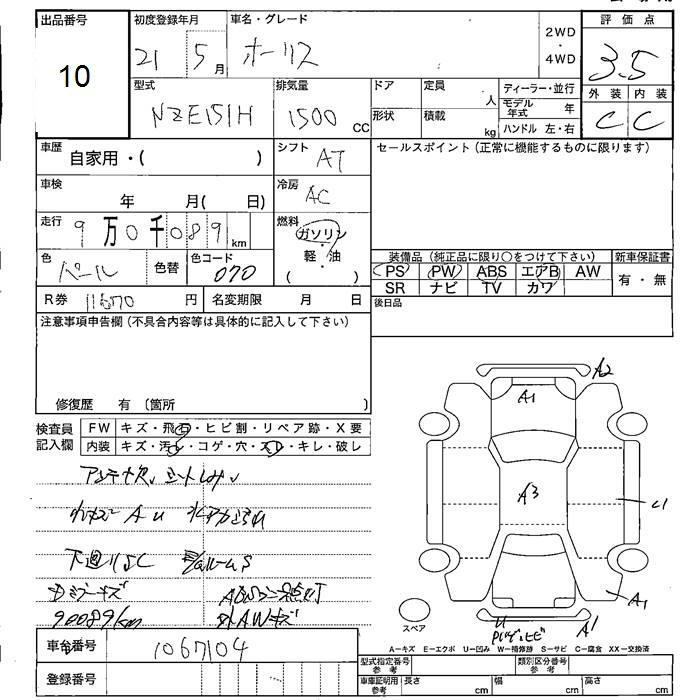 出品番号
10
初度登録年月
21 5 月
車名・グレード
オーリス
2WD
・
4WD
評価点
3.5
型式
NZE151H
排気量
1500 CC
ドア
形状
定員
人
積載
kg
ディーラー・並行
モデル年式 年
ハンドル 左・右
外装 内装
C C
車歴
自家用・( )
シフト
AT
セールスポイント(正常に機能するものに限ります)
車検
年 月( 日)
冷房
AC
走行
9 万 0 千 0 8 9 km
燃料
ガソリン
・
軽・油
( )
色
パール
色替
色コード
070
装備品(純正品に限り○をつけて下さい)
新車保証書
PS PW ABS エアB AW
SR ナビ TV カワ
有・無
R券 11670 円
名変期限 月 日
後日品
注意事項申告欄(不具合内容等は具体的に記入して下さい)
修復歴 有 〔箇所 〕
検査員
記入欄
FW キズ・飛石・ヒビ割・リペア跡・X要
内装 キズ・汚レ・コゲ・穴・スレ・キレ・破レ
下廻りSC
キズ
90089km
外AWキズ
A2
A1
A3
A1
U
A1
スペア
A-キズ E-エクボ U-凹み W-補修跡 S-サビ C-腐食 XX-交換済
車台番号 1067104
登録番号
型式指定番号
参考
類別区分番号
参考
車庫証明用
参考
長さ cm
幅 cm
高さ cm